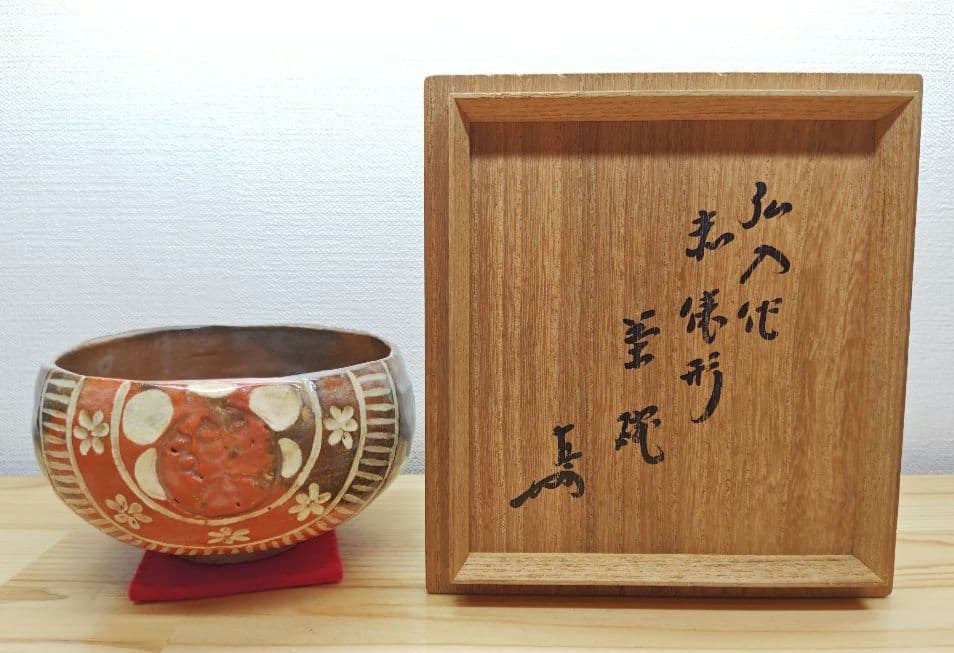 弘入作
赤俵形
茶碗